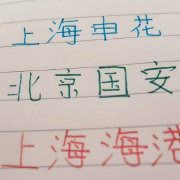 上海申花
北京国安
上海海港